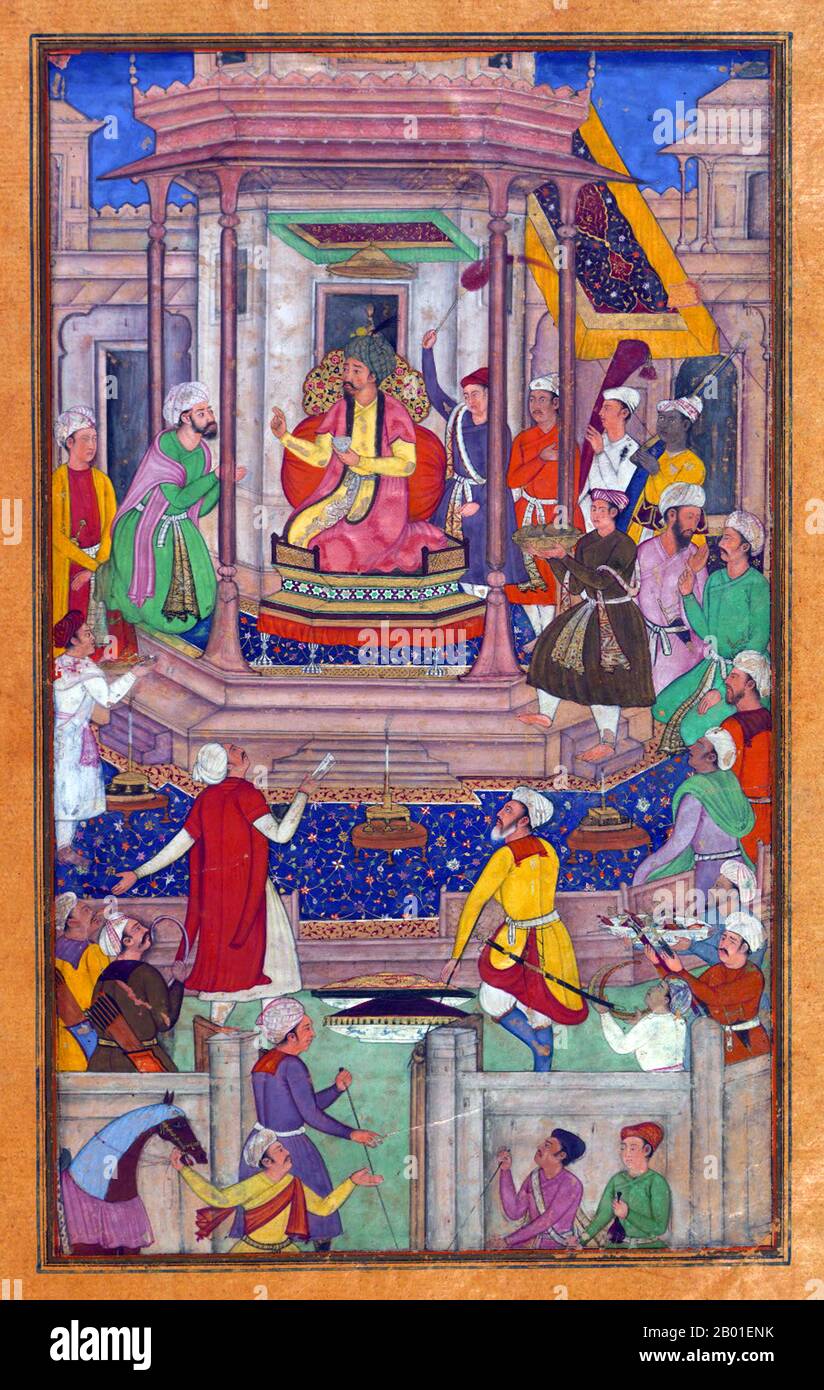 alamy
Image ID: 2B01ENK
www.alamy.com